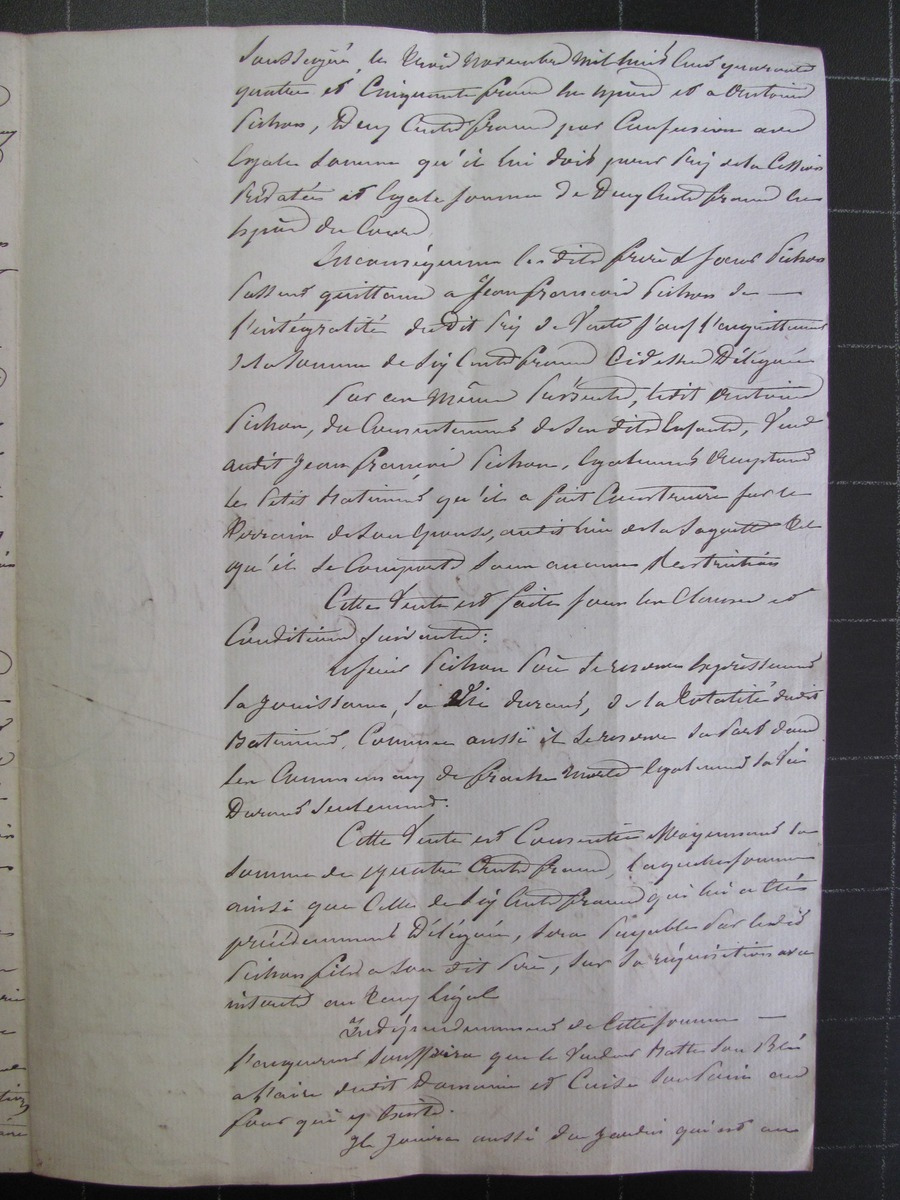 soussigné, le trois novembre mil huit cent quarante
quatre et cinquante francs en espèces et a Antoine
Pichon, deux cents francs par confusion avec
égale somme qu'il lui doit pour prix de la cession
prédatée et égale somme de deux cents francs en
espèces du cours
En conséquence les dits frères & soeur Pichon
passent quittance a Jean françois Pichon de —
l'intégralité du dit prix de vente sauf l'acquittement
de la somme de six cents francs ci dessus déléguée
Par ces mêmes présentes, ledit Antoine
Pichon, du consentement de ses dits enfants, vend
audit Jean françois Pichon, également acceptant
le petit batiment qu'il a fait construire sur le
terrain de son épouse, audit lieu de la tel
qu'il se comporte sans aucune restriction
Cette vente est faite sous les clauses et
conditions suivantes:
Pichon père se reserve expressement
la jouissance, sa vie durant, de la totalité du dit
batiment, comme aussi il se reserve sa part dans
les communaux de également sa vie
durant seulement.
Cette vente est consentie moyennant la
somme de quatre cents francs, laquelle somme
ainsi que celle de six cents francs qui lui a été
précédemment déléguée, sera payable par le dit
Pichon fils a son dit père, sur sa réquisition avec
interets au taux légal
Indépendamment de cette somme —
l'acquereur souffrira que le vendeur batte son blé
a l'aire du dit domaine et cuise son pain au
four qui y existe.
Il jouira aussi du jardin qui est au